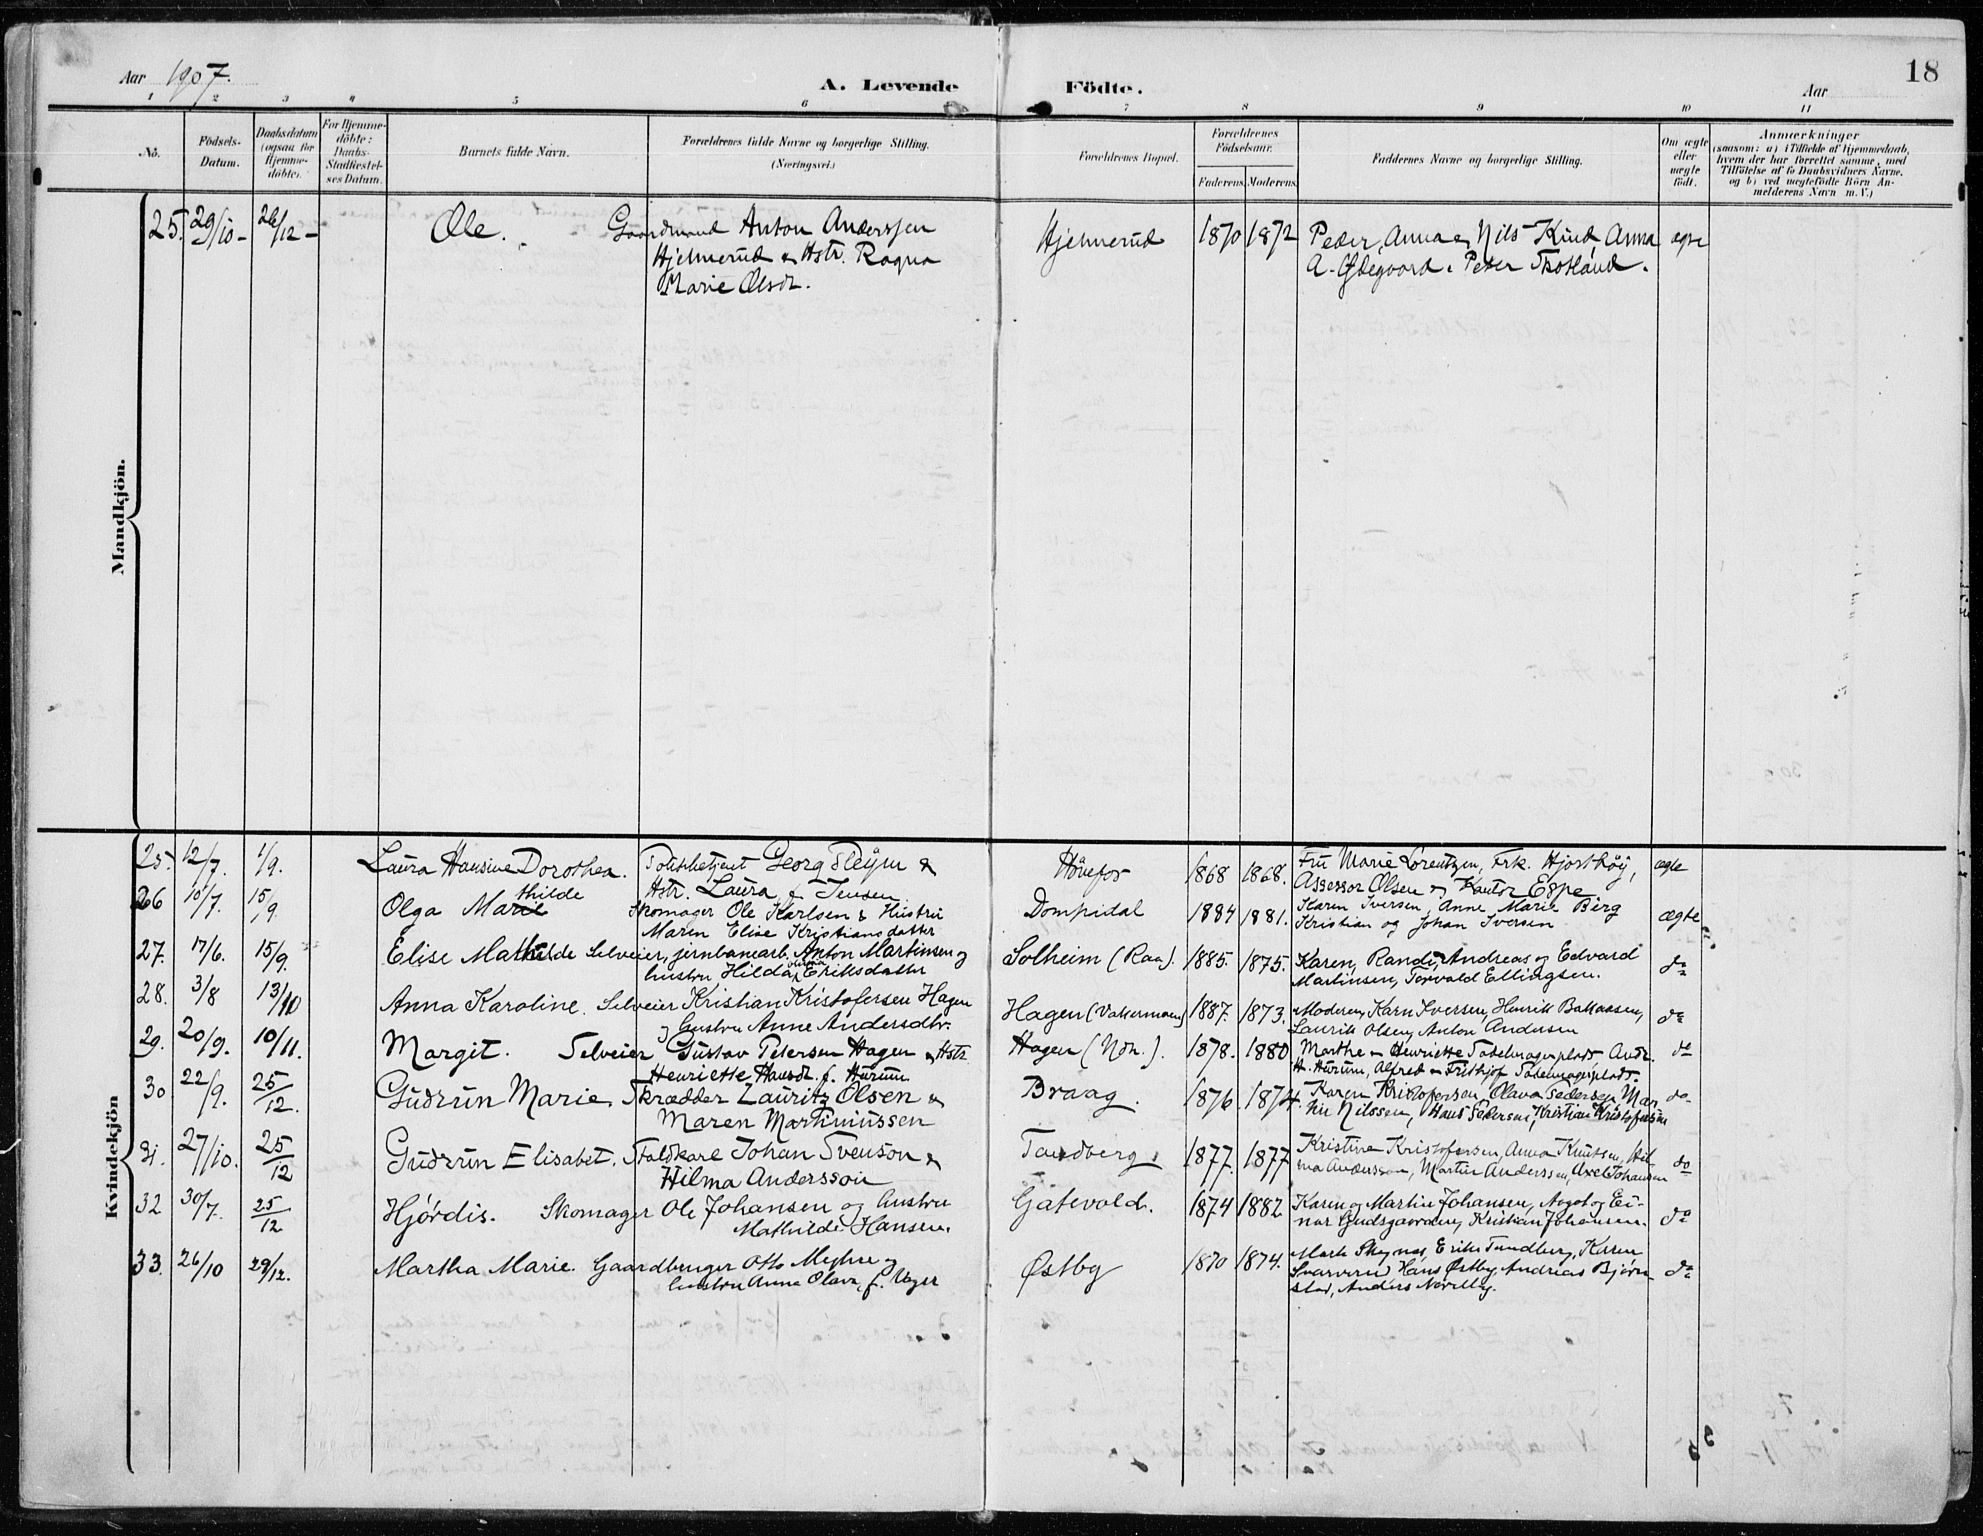 Aar 1907.
A. Levende Födte.
Aar
18
1 2 3 4 5 6 7 8 9 10 11
No.
Födsels-Datum.
Daabsdatum (ogsaa for Hjemme-döbte).
For Hjemme-döbte: Daabs-Stadfæstel-ses Datum.
Barnets fulde Navn.
Forældrenes fulde Navne og borgerlige Stilling. (Næringsvei.)
Forældrenes Bopæl.
Forældrenes Födselsaar.
Faderens. Moderens.
Faddernes Navne og borgerlige Stilling.
Om ægte eller uægte födt.
Anmærkninger
(saasom: a) i Tilfælde af Hjemmedaab,
hvem der har forrettet samme, med
Tilföielse af to Daabsvidners Navne.
og b) ved uægtefödte Börn An-
melderens Navn m. V.)
Mandkjön.
25. 29/10 - 26/12 - Ole. Gaardmand Anton Anderssen Hjelmerud 1870 1872 Peder, Anna & Nils Kind, Anna ægte
Hjelmerud & Hstr. Ragna A. Ødegaard, Peter
Marie Olsdr.
Kvindekjön
25. 12/7. 1/9. Laura Hansine Dorothea. Politibetjent Georg & Hönefos 1868 1868. Fru Marie Lorentzen, Frk. Hjorthöy, ægte
Hstr. Laura f. Jensen Assessor Olsen & Kantor Espe
26 10/7. 15/9. Olga Marie thilde Skomager Ole Karlsen & Hustru Dompidal 1884 1881. Karen Iversen, Anne Marie Berg ægte
Maren Elise Kristiansdatter Kristian og Johan Iversen
27. 17/6. 15/9. Elise Mathilde Selveier, jernbanearb. Anton Martinsen og Solheim (Raa). 1885. 1875. Karen, Randi, Andreas og Edvard do
hustru Hilda Eriksdatter Martinsen, Torvald Ellingsen.
28. 3/8 13/10 Anna Karoline. Selveier Kristian Kristofersen Hagen Hagen 1887. 1873. Moderen, Karn Iversen, Henrik do
og hustru Anne Andersdtr. Laurits Olsen, Anton Andersen
29. 20/9. 10/11. Margit. Selveier Gustav Petersen Hagen & Hstr Hagen (Ndr.). 1878. 1880 Marthe & Henriette Andr. do
Henriette Hansdr. f. Hurum H. Hurum, Alfred & Frithjof
30 22/9. 25/12. Gudrun Marie. Skrædder Lauritz Olsen & Braag. 1876. 1874. Karen Kristofersen, Olava Pedersen, Mar do
Maren Martinussen Nilssen, Hans Pedersen, Kristian Kristofersen
31. 27/10. 25/12 Gudrun Elisabet. Staldkarl Johan Svenson & Tandberg. 1877. 1877 Kristine Kristofersen, Anna Knutsen, Hil do
Hilma Andersson ma Andersson, Martin Anderssen, Axel Johansen
32 30/7. 25/12 Hjørdis. Skomager Ole Johansen og hustru Gatevold. 1874 1882 Karen og Martin Johansen, Aagot og Ei- do
Mathilde Hansen. nar Gudsgaarden, Kristian Johansen.
33. 26/10 29/12. Martha Marie. Gaardbruger Otto Myhre og Østby 1870 1874. Erik Tandberg, Karen do
hustru Anna Olava f. Hans Østby, Andreas Bjørn
stad, Anders